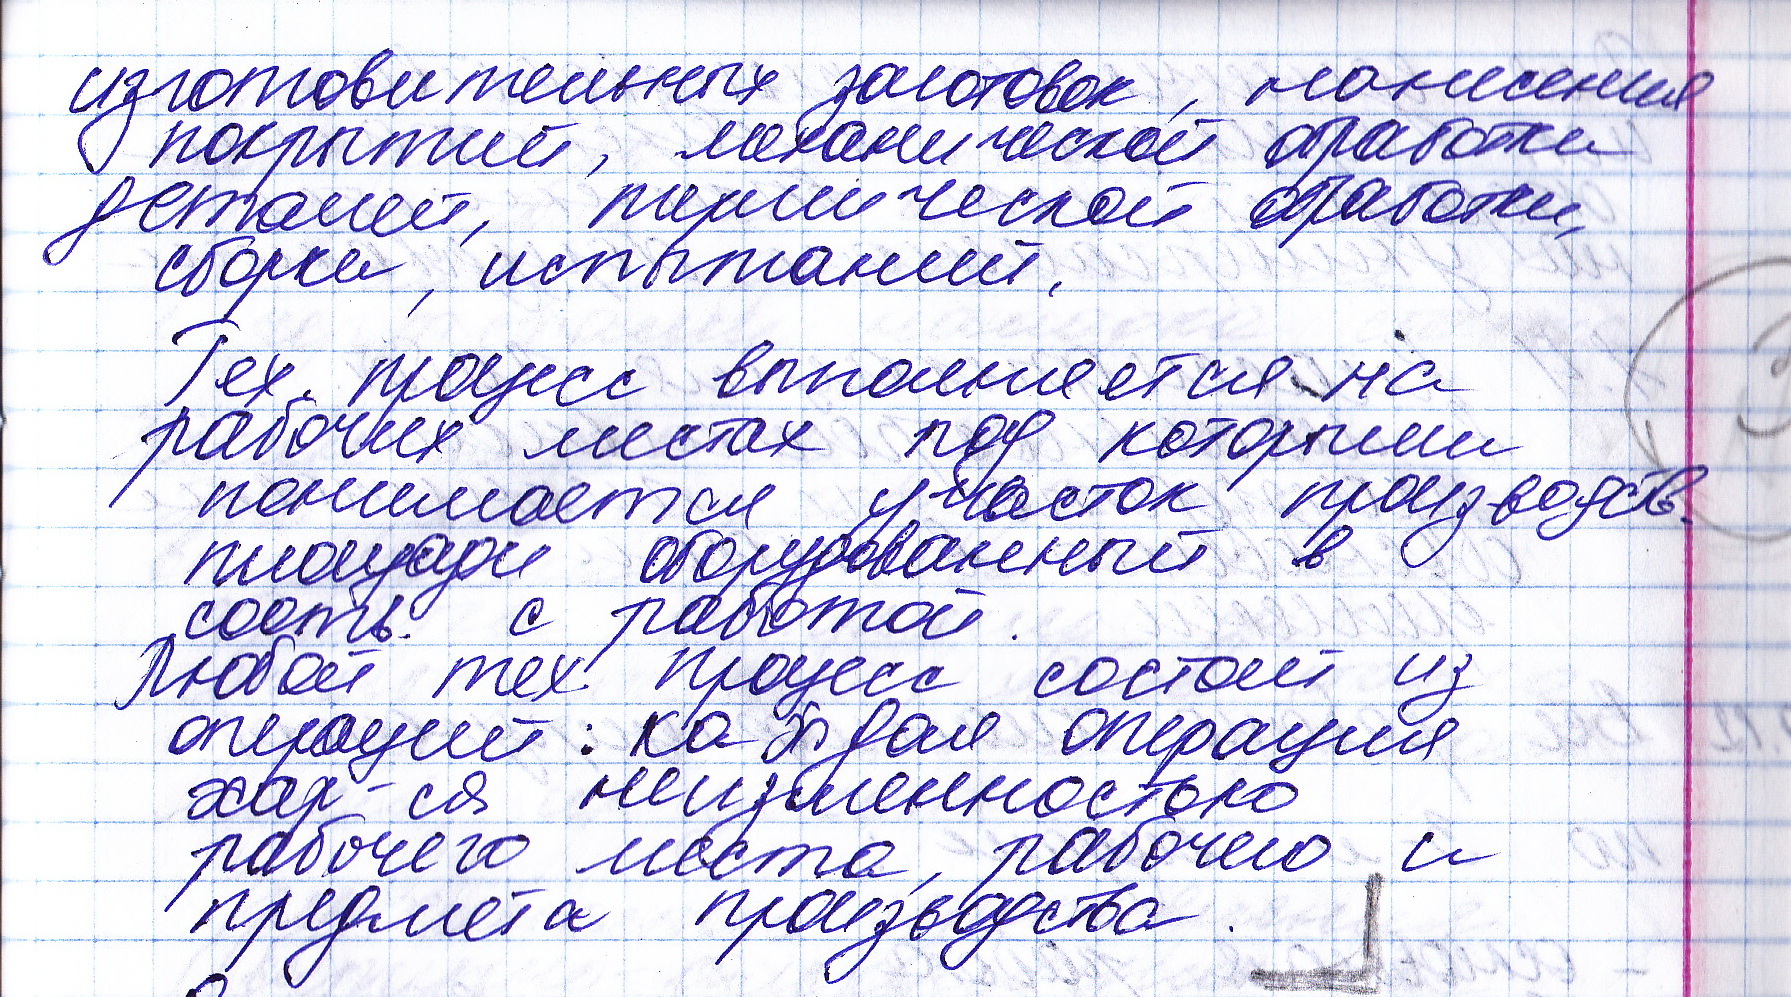 изготовительных заготовок, нанесения
покрытий, механической обработки
деталей, термической обработки,
сборки, испытаний.
Тех. процесс выполняется на
рабочих местах под которыми
понимается участок производств.
площади оборудованный в
соотв. с работой.
Любой тех. процесс состоит из
операций: каждая операция
хар-ся неизменностью
рабочего места, рабочего и
предмета производства.